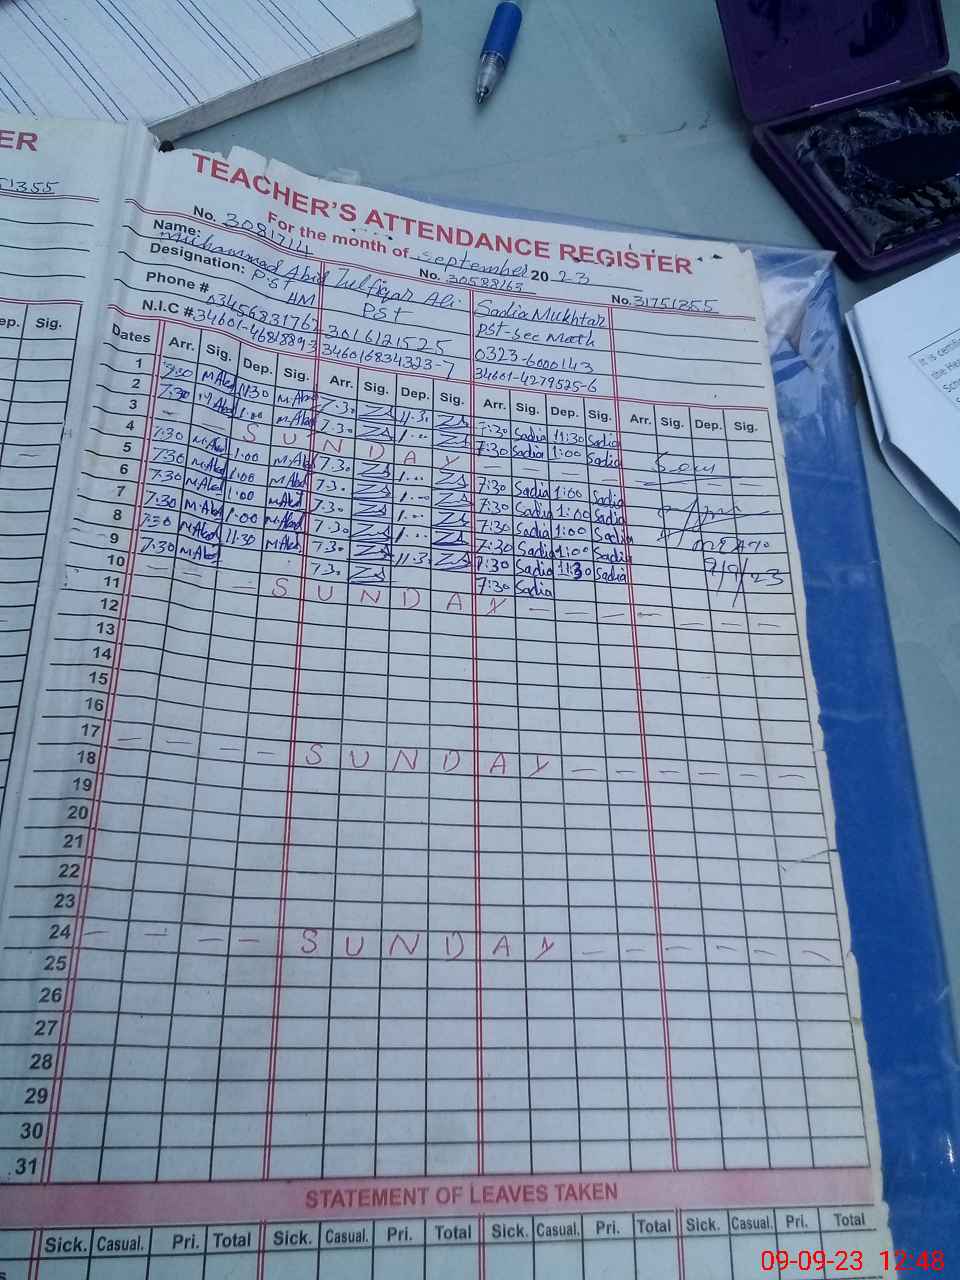 ER
51355
TEACHER'S ATTENDANCE REGISTER
For the month of September 2023
No. 30817114 No. 30588163 No. 31751355
Name: Muhammad Abid Zulfiqar Ali Sadia Mukhtar
Designation: PST HM PST PST-Sec Math
Phone # 03456831767 3016121525 0323-6000143
N.I.C # 34601-4681889-3 346016834323-7 34601-4279525-6
ep. Sig. Dates Arr. Sig. Dep. Sig. Arr. Sig. Dep. Sig. Arr. Sig. Dep. Sig. Arr. Sig. Dep. Sig.
1 7:30 M.Abid 11:30 M.Abid 7.30 11.30 7:30 Sadia 11:30 Sadia
2 7:30 M.Abid 1:00 M.Abid 7.30 1.00 7:30 Sadia 1:00 Sadia
3 - - S U N D A Y - - - - - -
4 7:30 M.Abid 1:00 M.Abid 7.30 1.00 7:30 Sadia 1:00 Sadia
5 7:30 M.Abid 1:00 M.Abid 7.30 1.00 7:30 Sadia 1:00 Sadia
6 7:30 M.Abid 1:00 M.Abid 7.30 1.00 7:30 Sadia 1:00 Sadia
7 7:30 M.Abid 1:00 M.Abid 7.30 1.00 7:30 Sadia 1:00 Sadia
8 7:30 M.Abid 11:30 M.Abid 7.30 11.30 7:30 Sadia 11:30 Sadia
9 7:30 M.Abid 7.30 7:30 Sadia
9/9/23
10 - - - S U N D A Y - - - - - - - -
11
12
13
14
15
16
17 - - - - S U N D A Y - - - - - -
18
19
20
21
22
23
24 - - - - S U N D A Y - - - - - -
25
26
27
28
29
30
31
STATEMENT OF LEAVES TAKEN
Sick. Casual. Pri. Total Sick. Casual. Pri. Total Sick. Casual. Pri. Total Sick. Casual. Pri. Total
It is certifi
the Hea
Scho
09-09-23 12:48